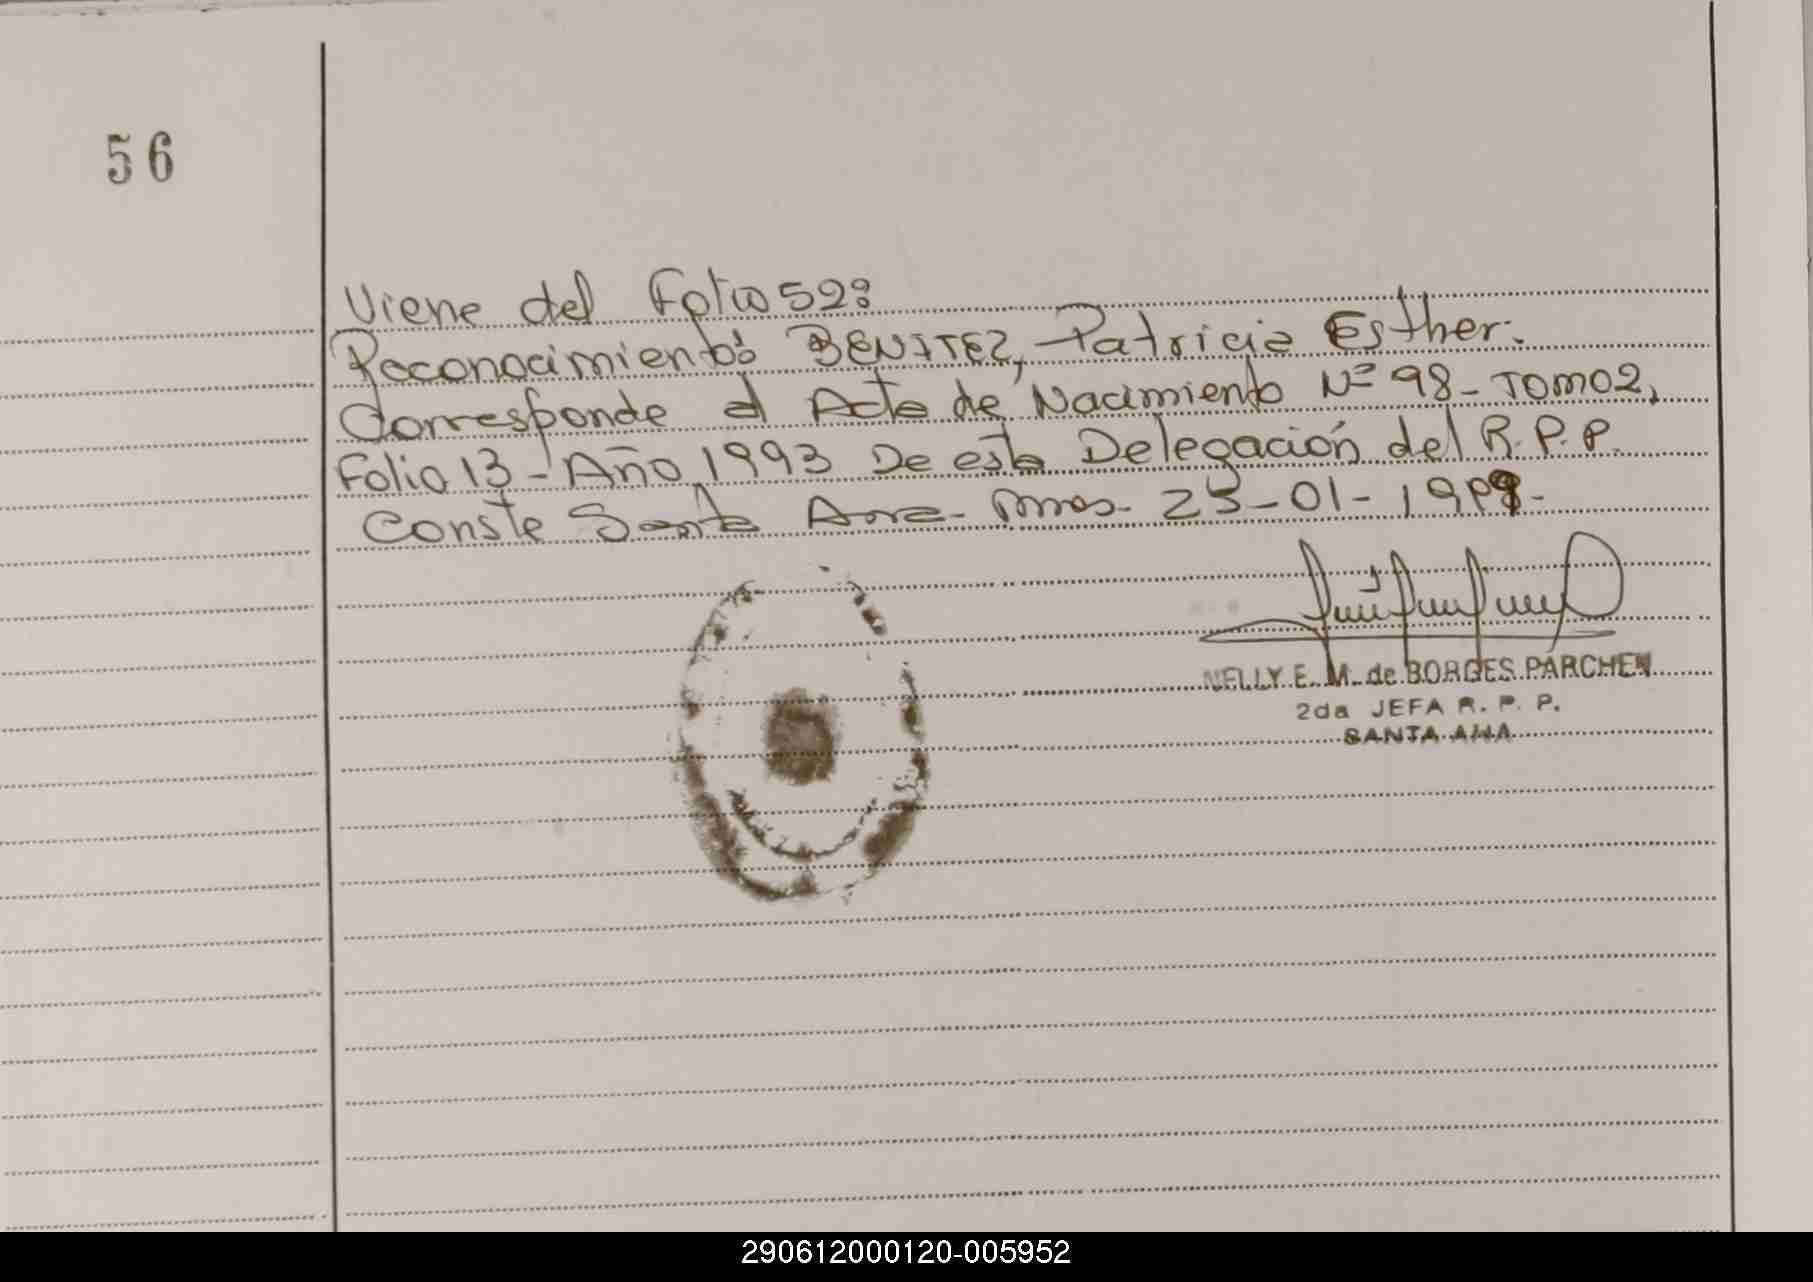 56
Viene del Folio 52:
Reconocimiento: BENITEZ, Patricia Esther.
Corresponde al Acta de Nacimiento Nº 98 - Tomo 2,
Folio 13 - Año 1993 De esta Delegación del R.P.P.
Conste Santa Ana - Mnes - 25-01-199
NELLY E. M. de BORGES PARCHEN
2da JEFA R. P. P.
SANTA ANA
290612000120-005952